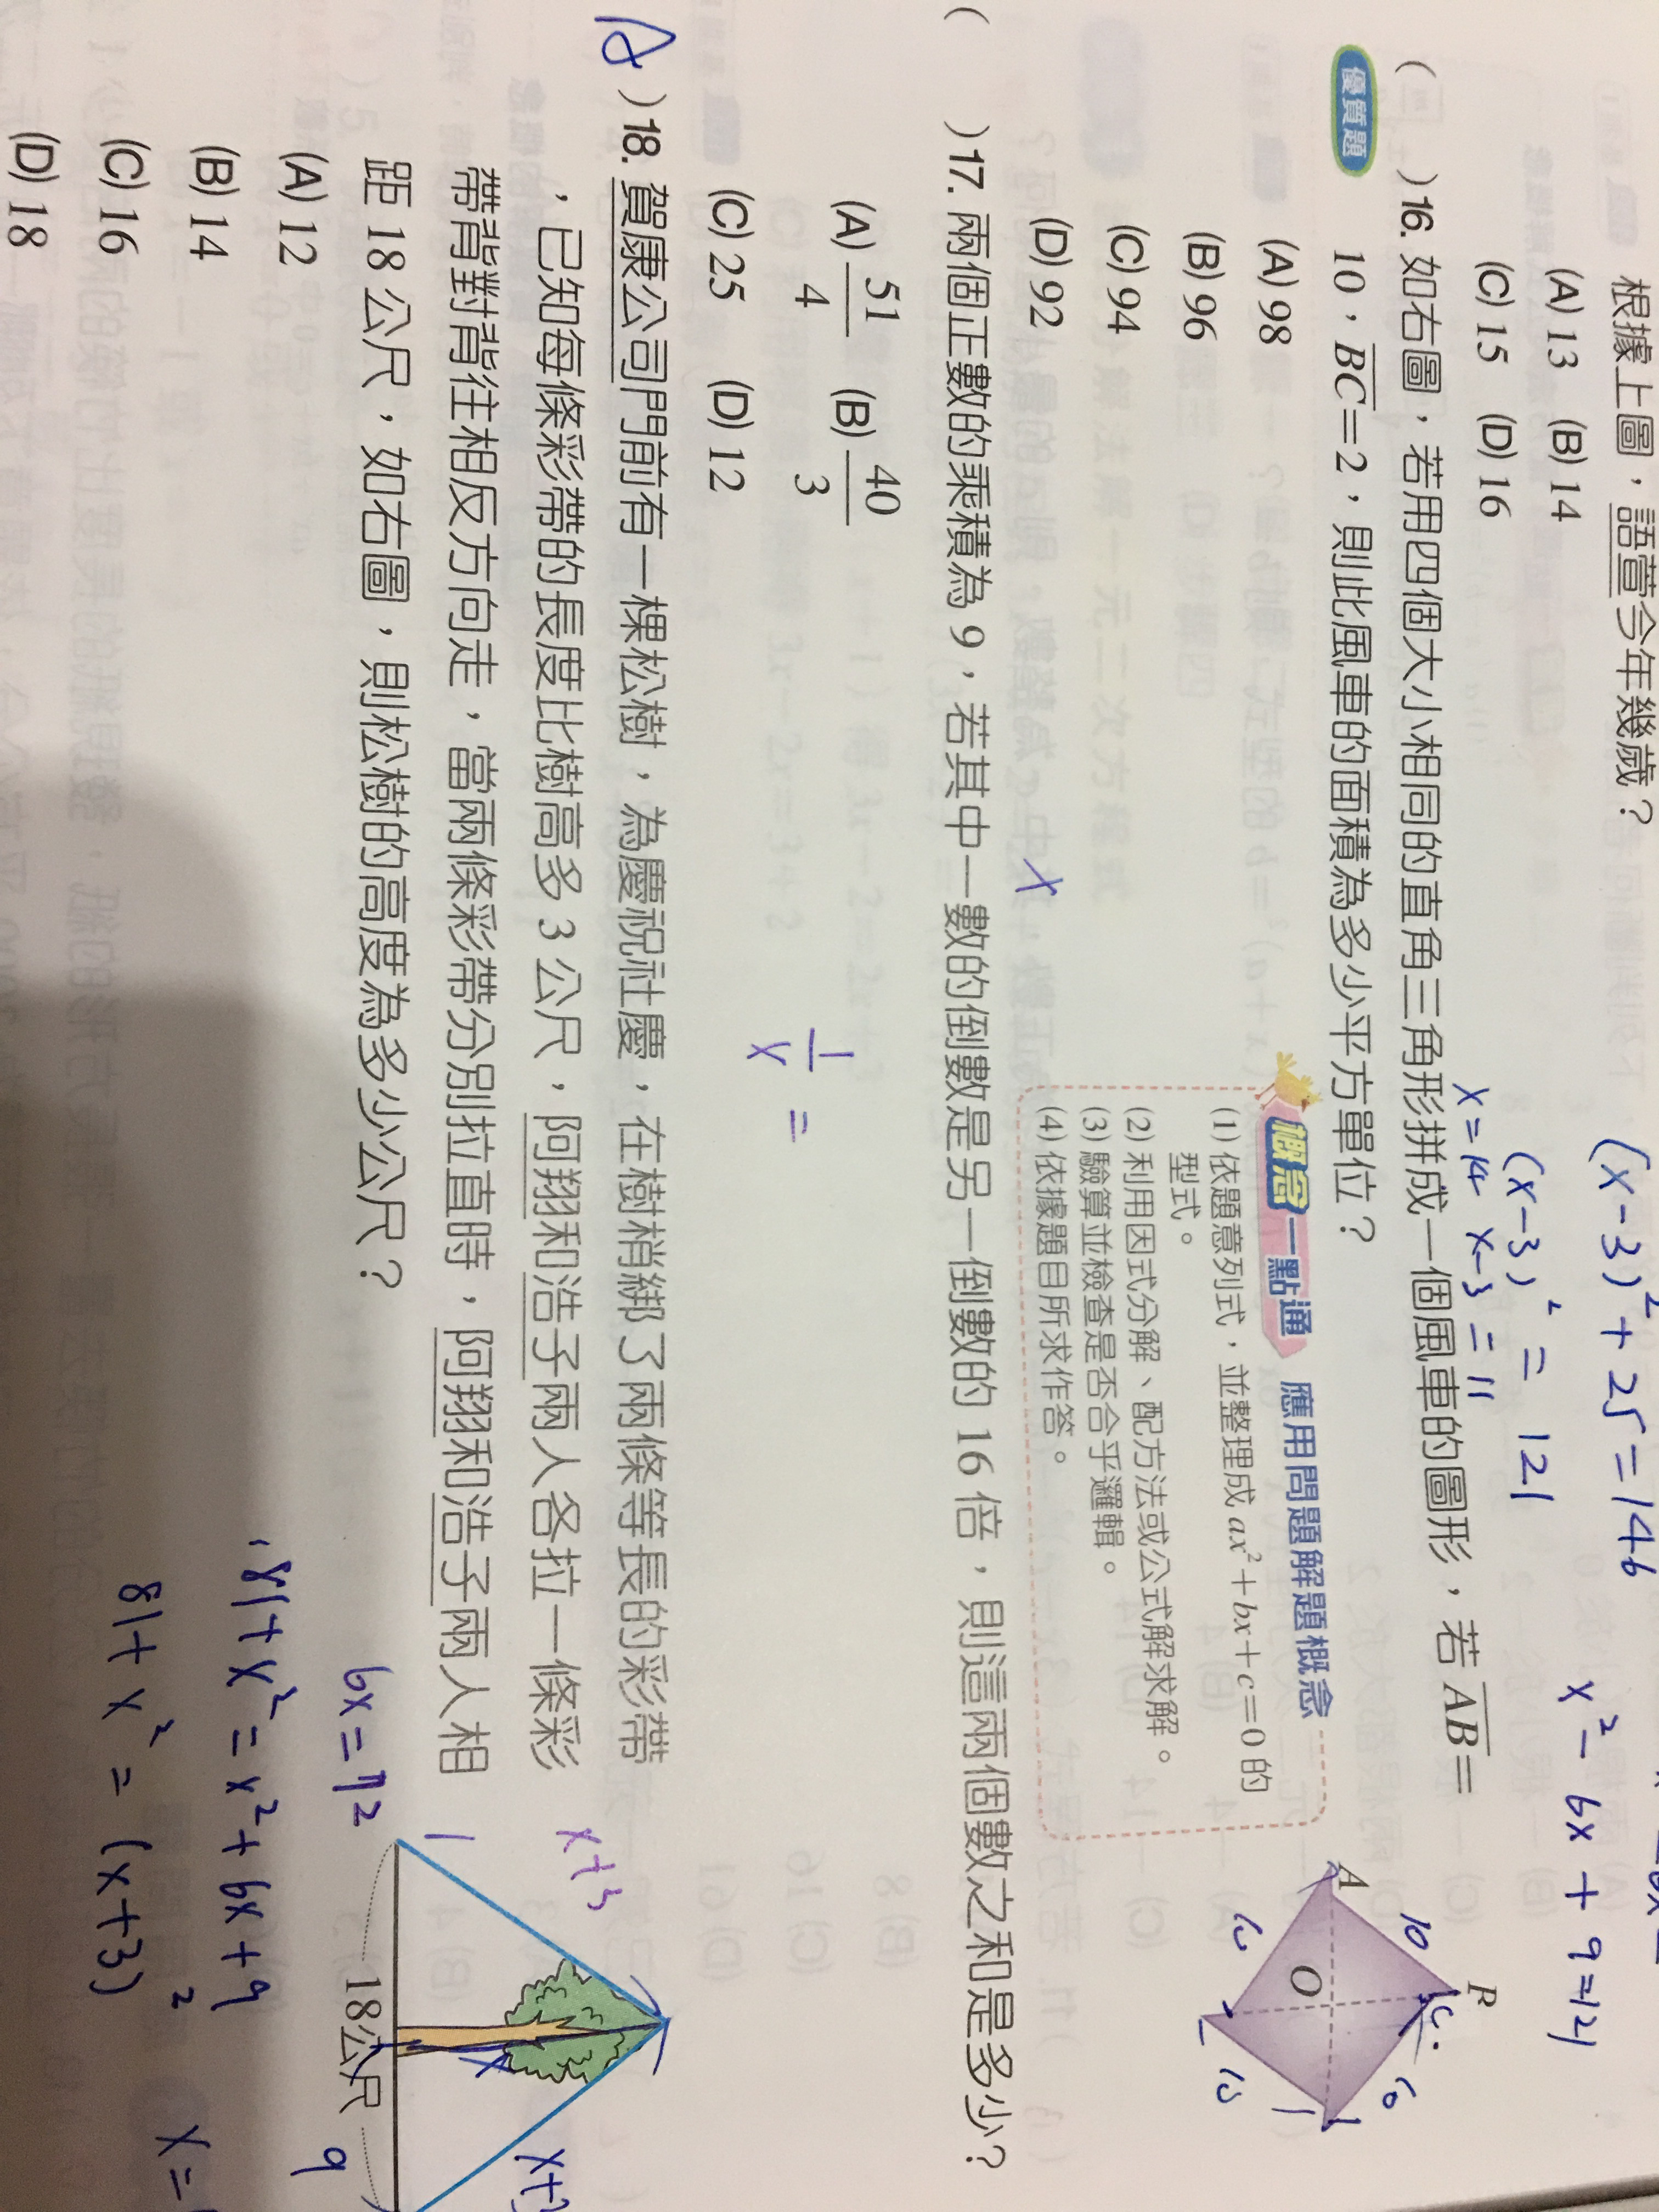 根據上圖，語萱今年幾歲？
(A) 13 (B) 14
(C) 15 (D) 16
(x-3)²+25=146
(x-3)²=121
x=14 x-3=11
x²-6x+9=121
( )16. 如右圖，若用四個大小相同的直角三角形拼成一個風車的圖形，若 AB=
優質題 10，BC=2，則此風車的面積為多少平方單位？
(A) 98
(B) 96
(C) 94
(D) 92
概念一點通 應用問題解題概念
(1) 依題意列式，並整理成 ax²+bx+c=0 的
型式。
(2) 利用因式分解、配方法或公式解求解。
(3) 驗算並檢查是否合乎邏輯。
(4) 依據題目所求作答。
A
10
O
( )17. 兩個正數的乘積為 9，若其中一數的倒數是另一倒數的 16 倍，則這兩個數之和是多少？
x
(A) 51/4 (B) 40/3
(C) 25 (D) 12
1/x =
( )18. 賀康公司門前有一棵松樹，為慶祝社慶，在樹梢綁了兩條等長的彩帶
，已知每條彩帶的長度比樹高多 3 公尺，阿翔和浩子兩人各拉一條彩
帶背對背往相反方向走，當兩條彩帶分別拉直時，阿翔和浩子兩人相
距 18 公尺，如右圖，則松樹的高度為多少公尺？
(A) 12
(B) 14
(C) 16
(D) 18
x+3
x
18公尺
9
6x=72
81+x²=x²+6x+9
81+x²=(x+3)²